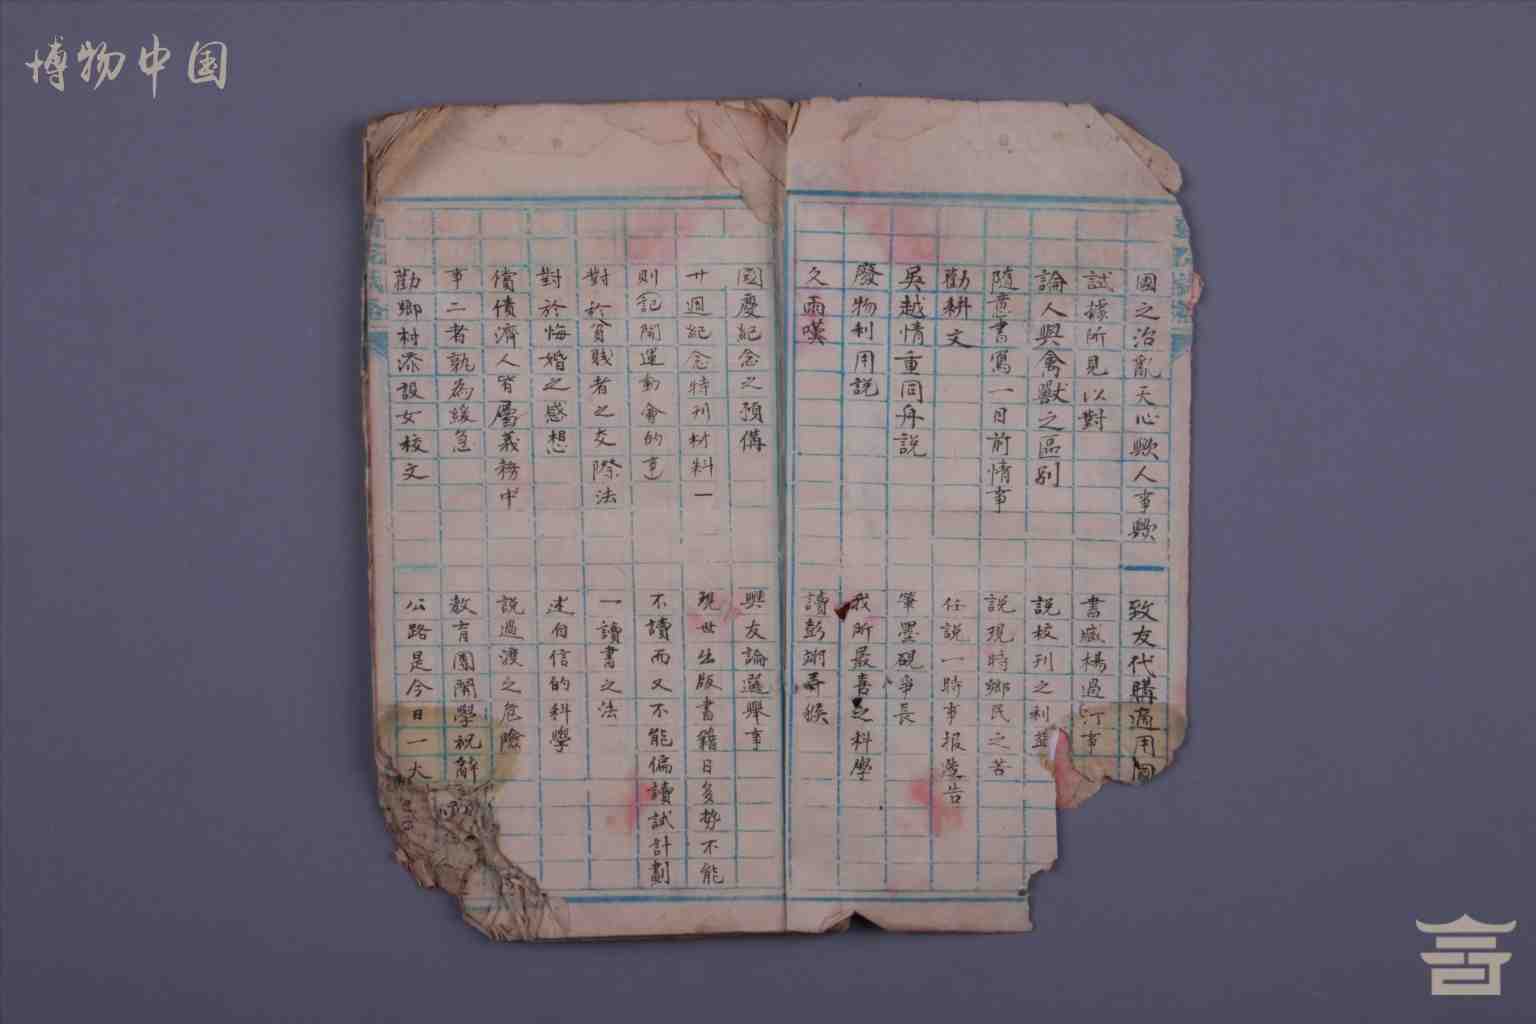 博物中国
國之治亂天心歟人事歟
試據所見以對
論人與禽獸之區別
隨意書寫一日前情事
勸耕文
吳越情重同舟說
廢物利用說
久雨嘆
致友代購適用
書臧楊過汀事
說校刊之利益
說現時鄉民之苦
任說一時事报告
筆墨硯爭長
我所最喜之科學
讀彭
國慶紀念之預備
廿週紀念特刊材料一
則記開運動會的事
對於貧賤者之交際法
對於悔婚之感想
償債濟人皆屬義務中
事二者孰為緩急
勸鄉村添設女校文
與友論選舉事
現世出版書籍日多勢不能
不讀而又不能偏讀試計劃
一讀書之法
述自信的科學
說過渡之危險
教育團開學祝辭
公路是今日一大